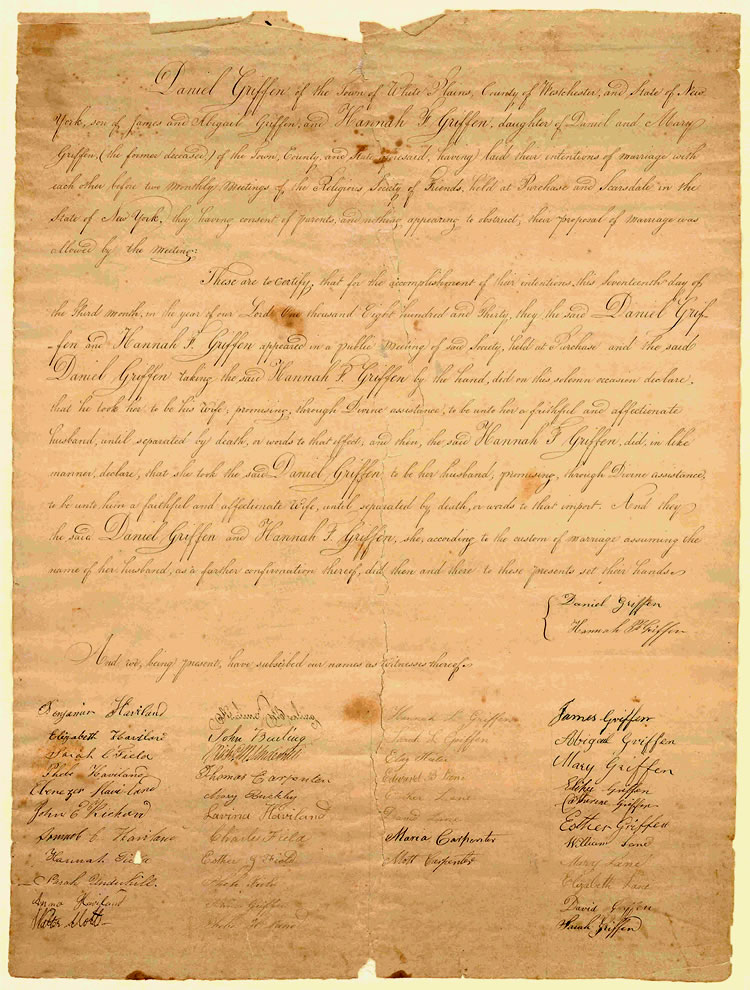 Daniel Griffen of the Town of White Plains, County of Westchester, and State of New
York, son of James and Abigail Griffen, and Hannah F Griffen, daughter of Daniel and Mary
Griffen, (the former deceased) of the Town, County, and State aforesaid, having laid their intentions of marriage with
each other before two Monthly Meetings of the Religious Society of Friends, held at Purchase and Scarsdale in the
State of New York, they having consent of parents, and nothing appearing to obstruct, their proposal of marriage was
allowed by the meeting:
These are to certify, that for the accomplishment of their intentions, this seventeenth day of
the Third month, in the year of our Lord One thousand Eight hundred and Thirty, they the said Daniel Grif-
-fen and Hannah F. Griffen appeared in a public Meeting of said Society, held at Purchase and the said
Daniel Griffen taking the said Hannah F. Griffen by the hand, did on this solemn occasion declare,
that he took her to be his Wife, promising, through Divine assistance, to be unto her a faithful and affectionate
husband, until separated by death, or words to that effect, and then, the said Hannah F Griffen, did, in like
manner, declare, that she took the said Daniel Griffen to be her husband, promising, through Divine assistance,
to be unto him a faithful and affectionate Wife, until separated by death, or words to that import. And they
the said Daniel Griffen and Hannah F. Griffen, she, according to the custom of marriage assuming the
name of her husband, as a farther confirmation thereof, did, then and there to these presents set their hands
Daniel Griffen
Hannah F Griffen
And we, being present, have subscribed our names as witnesses thereof
Benjamin Haviland
Elizabeth Haviland
Sarah C Field
Phebe Haviland
Ebenezer Haviland
John C Rickord
C. Haviland
Hannah Field
Sarah Underhill
Anna Haviland
Mott
John Burling
Thomas Carpenter
Mary Barkley
Lavina Haviland
Charles Field
Esther G Field
Griffen
Hannah L Griffen
Sarah L Griffen
Edward B Lane
Lane
David Lane
Maria Carpenter
Mott Carpenter
James Griffen
Abigail Griffen
Mary Griffen
Griffen
Catharine Griffen
Esther Griffen
William Lane
Mary Lane
Elizabeth Lane
David Griffen
Sarah Griffen